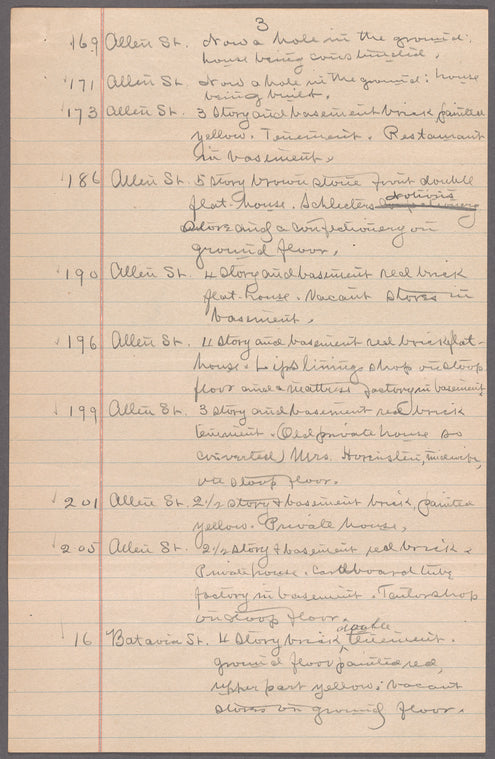 3
169 Allen St. Now a hole in the ground;
house being constructed.
171 Allen St. Now a hole in the ground; house
being built.
173 Allen St. 3 story and basement brick, painted
yellow. Tenement. Restaurant
in basement.
186 Allen St. 5 story brown stone front double
flat-house. Schlecters notions
store and a confectionery on
ground floor.
190 Allen St. 4 story and basement red brick
flat-house. Vacant stores in
basement.
196 Allen St. 4 story and basement red brick flat-
house. linings shop on stoop
floor and a mattress factory in basement
199 Allen St. 3 story and basement red brick
tenement. (Old private house so
converted) Mrs. midwife,
on stoop floor.
201 Allen St. 2 1/2 story & basement brick, painted
yellow. Private house.
205 Allen St. 2 1/2 story & basement red brick.
Private house. Cardboard tube
factory in basement. Tailorshop
on stoop floor.
16 Batavia St. 4 story brick double tenement.
ground floor painted red,
upper part yellow; vacant
stores on ground floor.